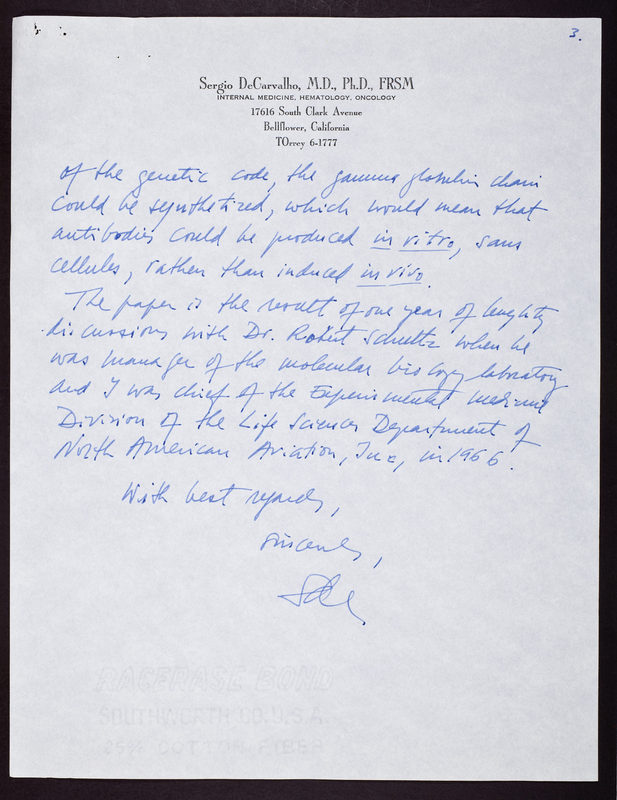 3.
Sergio DeCarvalho, M.D., Ph.D., FRSM
INTERNAL MEDICINE, HEMATOLOGY, ONCOLOGY
17616 South Clark Avenue
Bellflower, California
TOrrey 6-1777
of the genetic code, the gamma globulin chain
could be synthetized, which would mean that
antibodies could be produced in vitro, sans
cellules, rather than induced in vivo.
The paper is the result of one year of lenghty
discussions with Dr. Robert Schuetz when he
was manager of the molecular biology laboratory
and I was chief of the Experimental medicine
Division of the Life Sciences Department of
North American Aviation, Inc, in 1966.
With best regards,
Sincerely,
RACERASE BOND
SOUTHWORTH CO. U.S.A.
25% COTTON FIBER